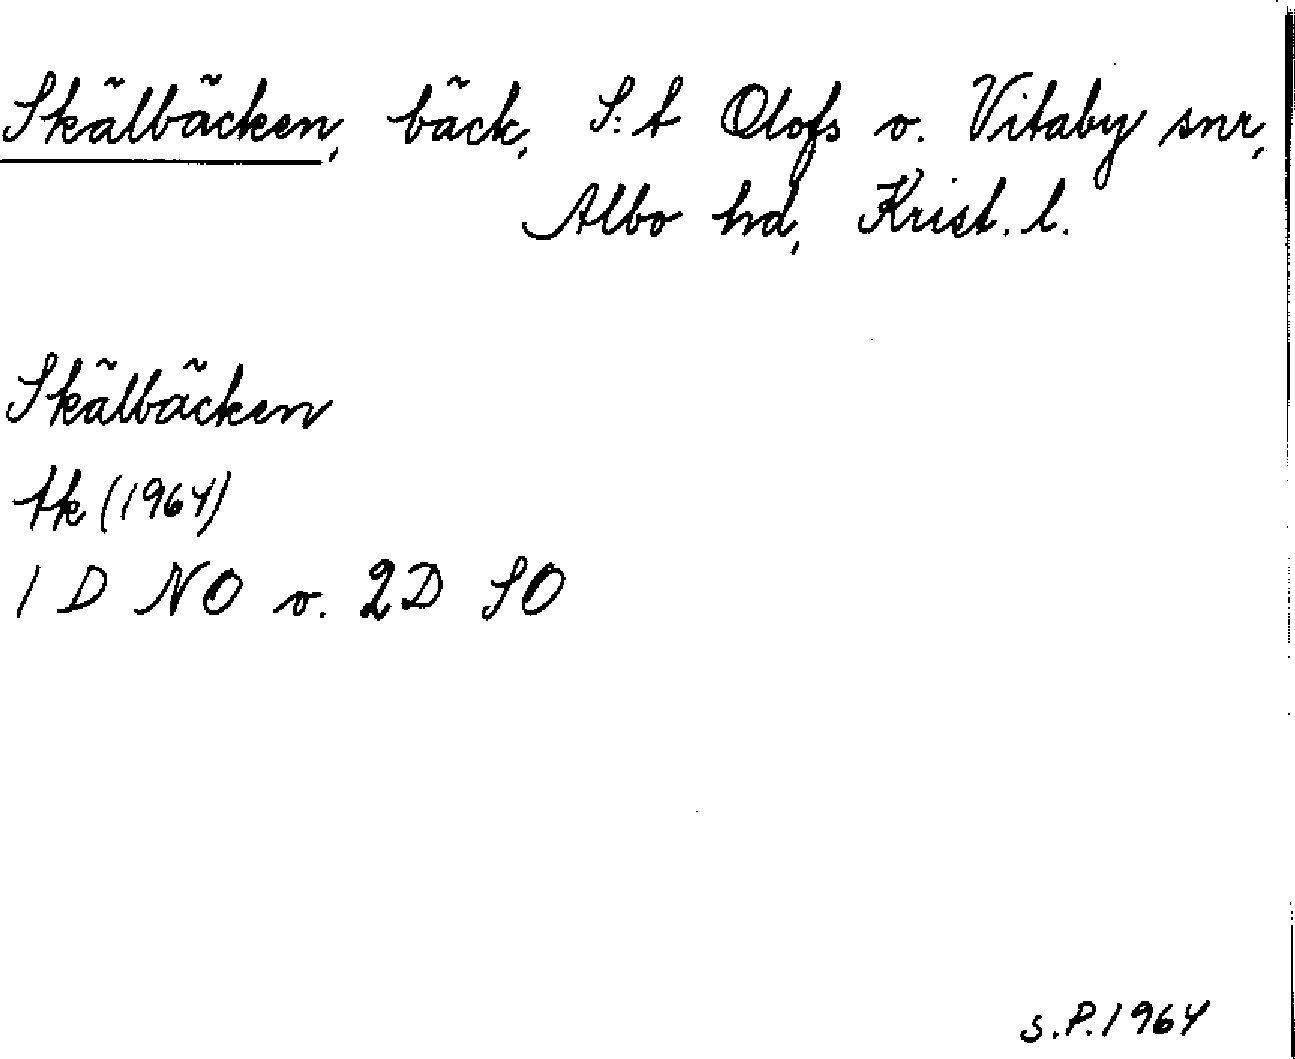 Skälbäcken, bäck, S:t Olofs o. Vitaby snr,
Albo hd, Krist. l.
Skälbäcken
tk (1964)
1 D NO o. 2D SO
S.P. 1964